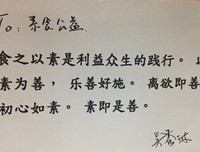 To: 素食公益
食之以素是利益众生的践行。以
素为善，乐善好施。离欲即善
初心如素。素即是善。
吴